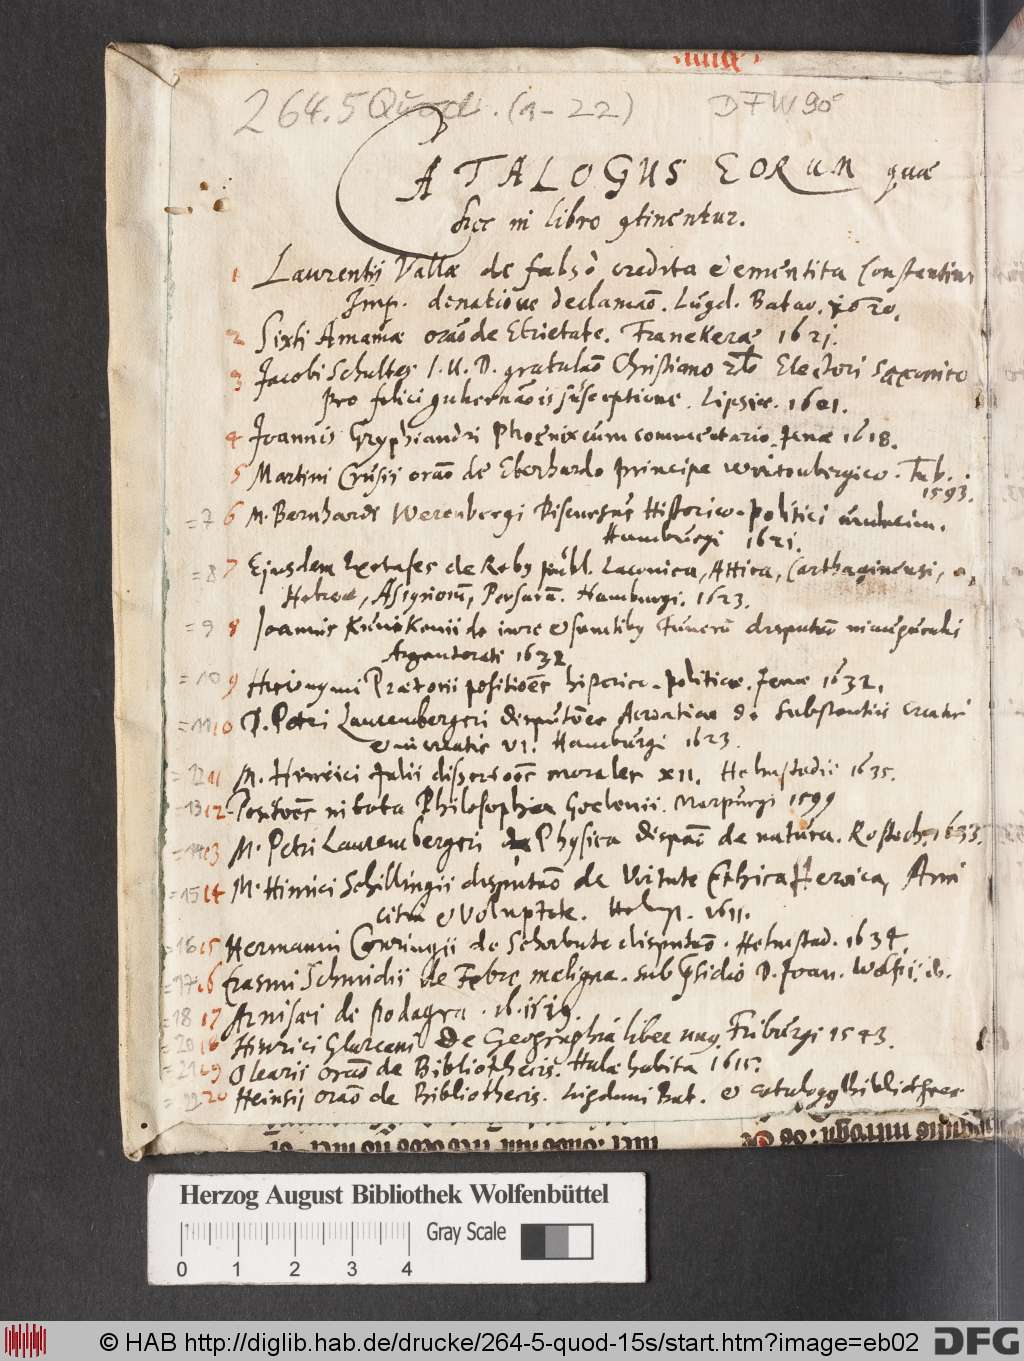 264.5 Quod. (1-22) DFW 90
CATALOGUS EORUM quae
hic in libro gtinentur.
1 Laurentij Vallae de falsò credita & ementita Constantini
Imp. donatione declamaõ. Lugd. Batav. 1620.
2 Sixti Amamae oraõ de Ebrietate. Franekerae 1621.
3 Jacobi Schultes I.U.D. gratulaõ Christiano Electori Saxonico
pro felici gubernaõis susceptione. Lipsiae. 1601.
4 Joannis Gryphiandri Phoenix cum commentario. Jenae 1618.
5 Martini Crusii oraõ de Eberhardo principe wirtenbergico. Tub.
1593.
=7 6 M. Bernhardi Werenbergi Discursus Historico-politici
Hamburgi 1621.
=8 7 Ejusdem de Rebp publ. Laconica, Attica, Carthaginensi,
Hebrea, Assyriorũ, Persarũ. Hamburgi. 1623.
=9 8 Joannis de iure & sumtibq funerũ disputaõ
Argentorati 1632
=10 9 Hieronymi Praetorii positiões historico-politicae. Jenae 1632.
=11 10 D. Petri Laurembergeri disputões Acroaticae de Substantiis
VI. Hamburgi 1623.
=12 11 M. Hinrici Julii morales XII. Helmstadii 1635.
=13 12 Positiões in tota Philosophia Goclenii. Marpurgi 1599
13 M. Petri Laurembergeri Physica dispaõ de natura. Rostoch. 1633.
=15 14 M. Hinrici Schillingii disputaõ de Virtute Ethica Heroica, Ami
citia & Voluptate. 1611.
=16 15 Hermanni Conringii de Scorbuto disputaõ. Helmstad. 1634.
=17 16 Erasmi Schmidii de Febre maligna. sub Psidio D. Joan. Wolfii. ib.
=18 17 Arnisaei de podagra. ib.
=20 18 Hinrici Glareani De Geographia liber unq. Friburgi 1543.
=21 19 Olearii oraõ de Bibliothecis. Hala habita 1615.
=22 20 Heinsij oraõ de Bibliothecis. Lugduni Bat. &
Herzog August Bibliothek Wolfenbüttel
Gray Scale
0 1 2 3 4
© HAB http://diglib.hab.de/drucke/264-5-quod-15s/start.htm?image=eb02
DFG